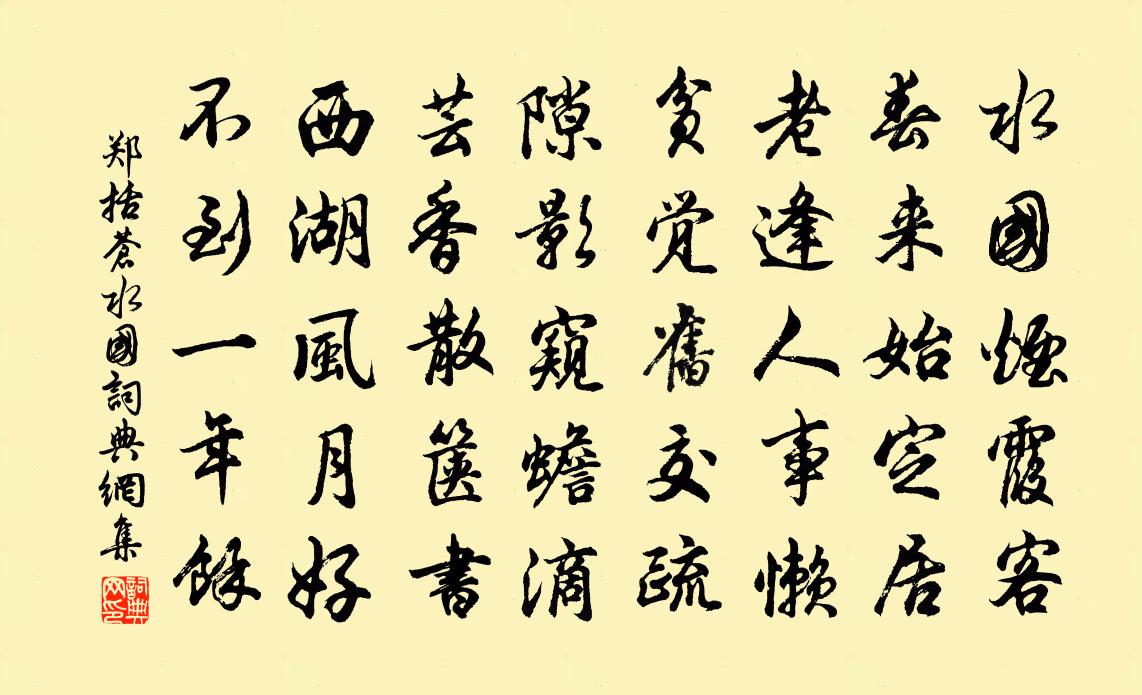 水國煙霞客
春来始定居
老逢人事懒
貧覺舊交疏
隙影窺蟾滴
芸香散篋書
西湖風月好
不到一年餘
郑括蒼水國詞典網集
詞典网印